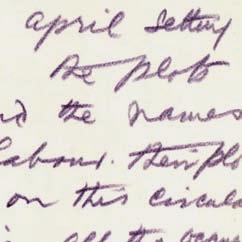 april setting
the plots
the names
labour. their plo
on this circula
all the